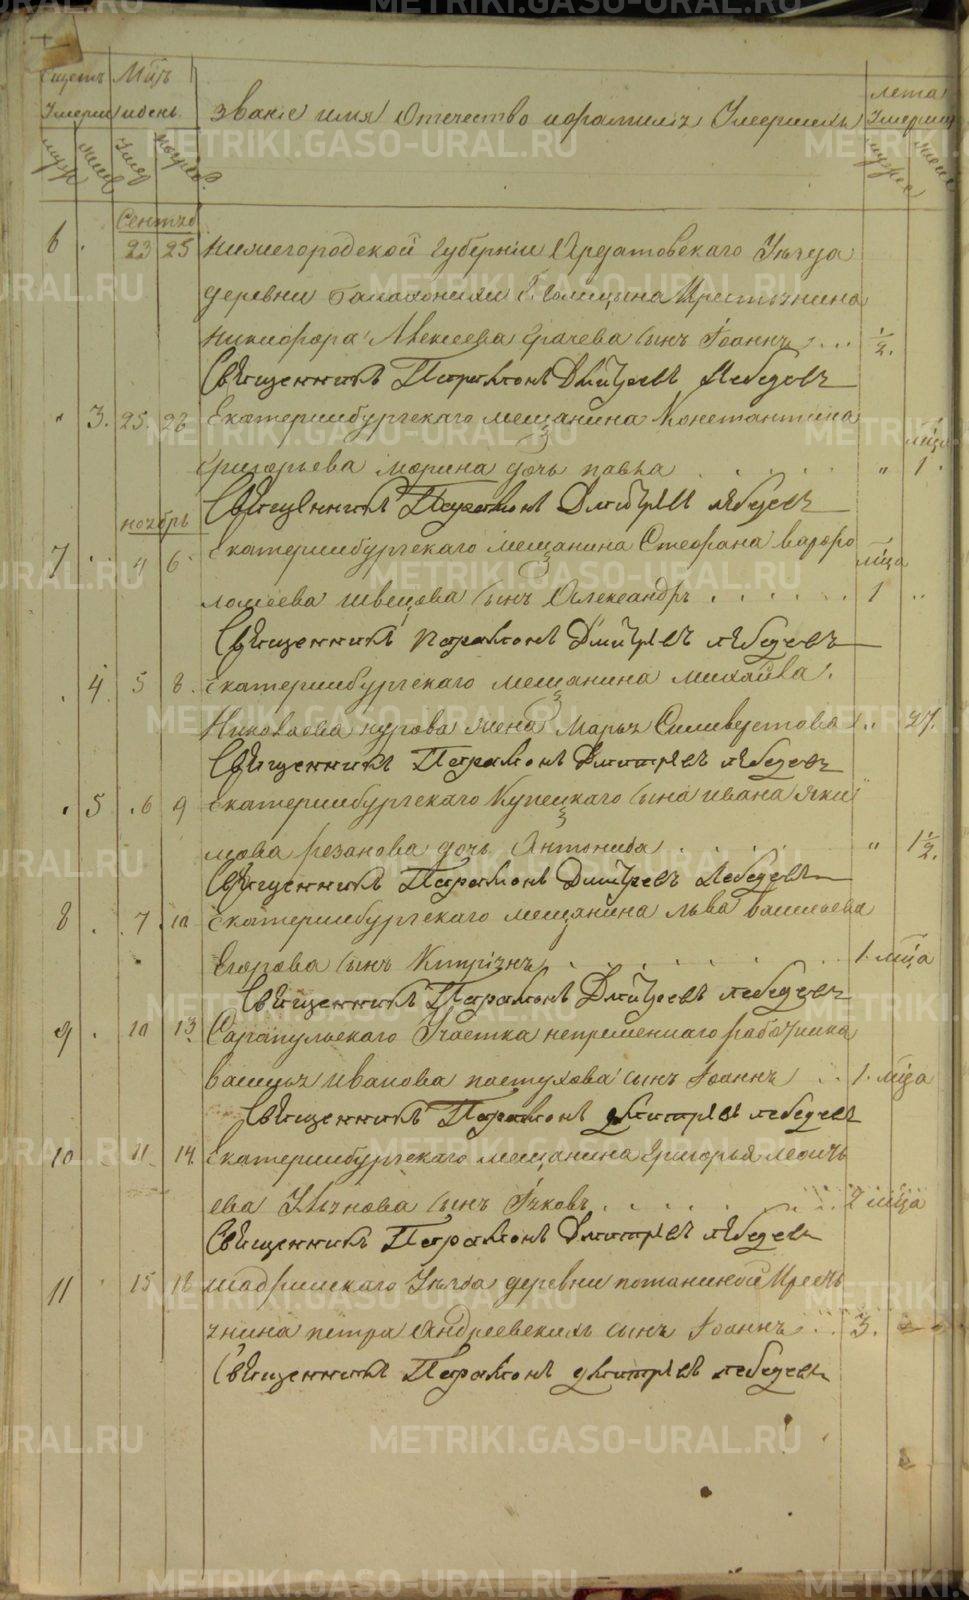 Счетъ Мцъ
Умерш и день. Званіе имя Отечество и фамилія Умершихъ лета Умерш
муж жен Умер погреб. мужес женс
Сентяб
6 . 23 25 Нижегородской Губерніи Ардатовскаго Уѣзда
деревни Помещика Крестьянина
Никифора Алексеева Грачева сынъ Іоаннъ . . . 1/2.
Священникъ Парамонъ Дмитріевъ Лебедевъ
" 3. 25. 26 Екатеринбургскаго мещанина Константина
Григорьева дочь павла . . . . . " мѣся 1.
Священникъ Парамонъ Дмитріевъ лебедевъ
ноябрь
7 . 4 6. Екатеринбургскаго мещанина Стефана варфо мѣца
ломеева швецова сынъ Александръ . . . . . . 1 ..
Священникъ Парамонъ Дмитріевъ лебедевъ
. 4 5 8. Екатеринбургскаго мещанина михайла
Николаева курова жена Марья Силивестова .. 27.
Священникъ Парамонъ Дмитріевъ лебедевъ
. 5 .6 9 Екатеринбургскаго Купецкаго сына ивана яки
мова резанова дочь Антонида . . . . . " 1 1/2.
Священникъ Парамонъ Дмитріевъ Лебедевъ
8 . 7. 10 Екатеринбургскаго мещанина льва васильева
Егорова сынъ Кипріянъ . . . . . . . 1. мѣца
Священникъ Парамонъ Дмитріевъ лебедевъ
9 . 10 13. Сарапульскаго Участка непременнаго работника
василья иванова пастухова сынъ Іоаннъ . . 1. мѣца
Священникъ Парамонъ дмитріевъ лебедевъ
10 . 11. 14. Екатеринбургскаго мещанина Григорья леонть
ева сынъ Іяковъ . . . . . . . . 2 мѣца
Священникъ Парамонъ Дмитріевъ лебедевъ
11 15 18 шадринскаго Уѣзда деревни потаниной Кресть
янина петра Андреевскихъ сынъ Іоаннъ . . . 3.
Священникъ Парамонъ дмитріевъ лебедевъ
METRIKI.GASO-URAL.RU